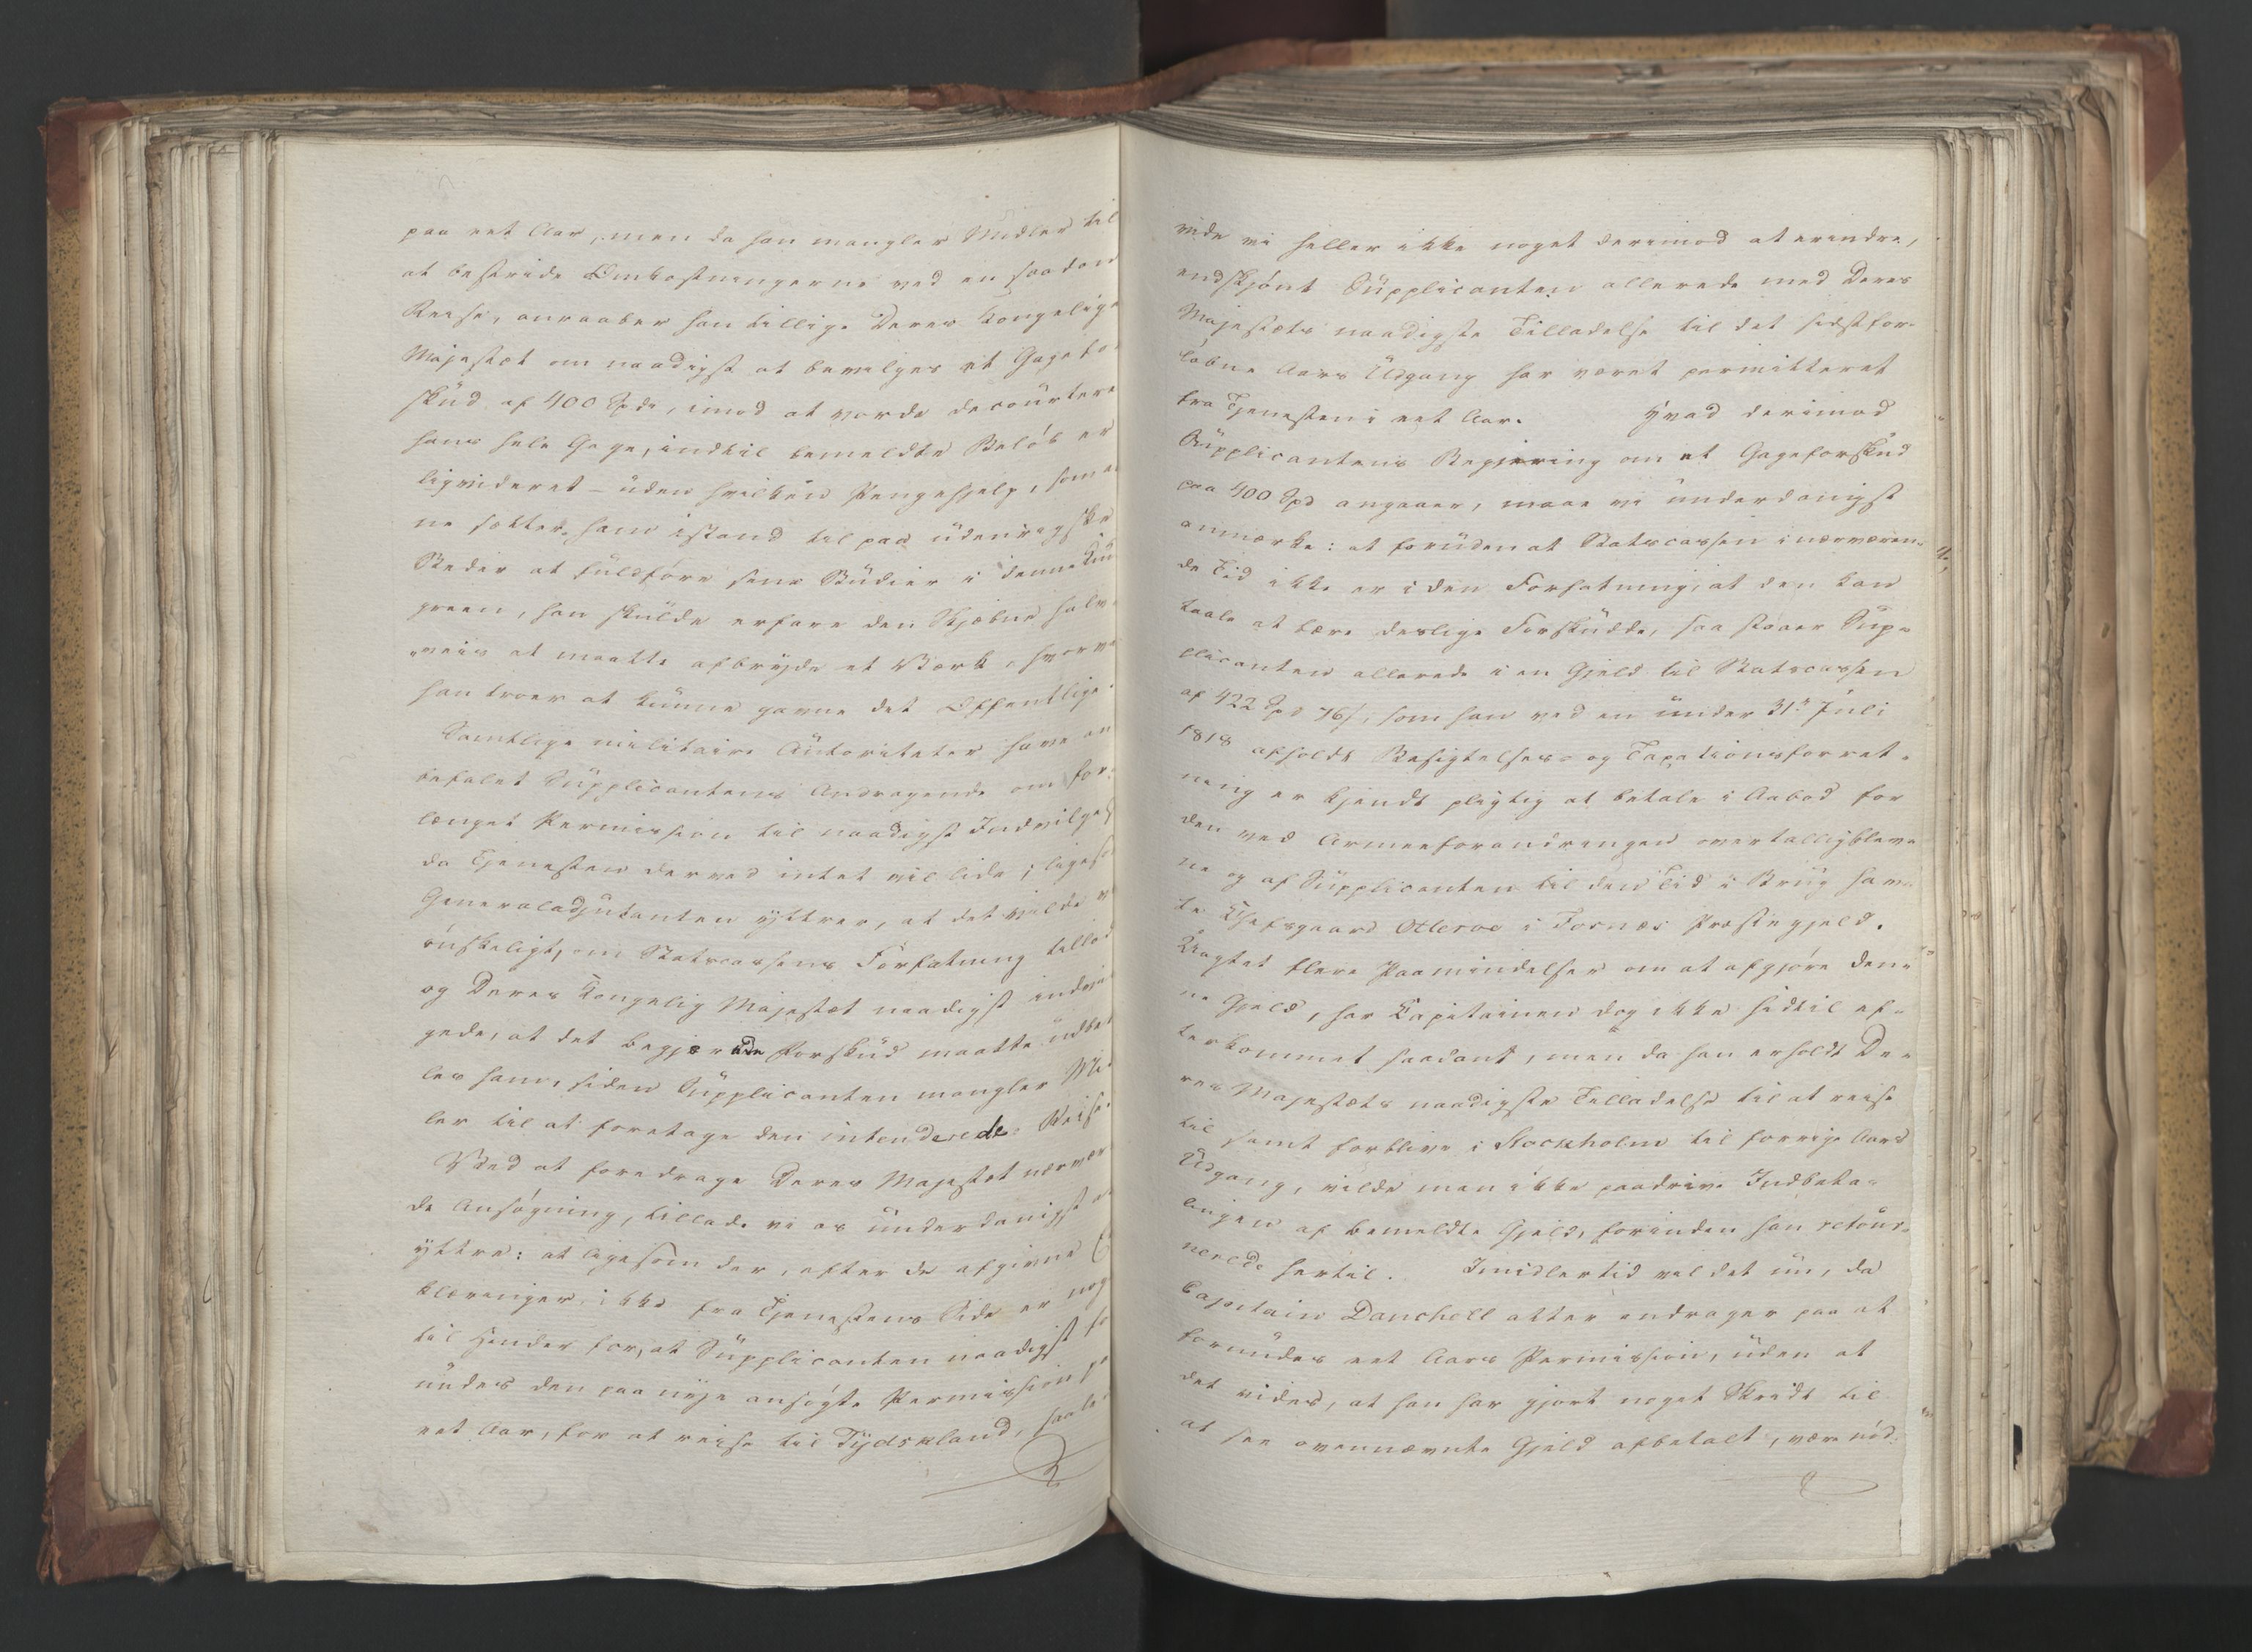 paa eet Aar, men da han mangler Midler til
at bestride Omkostningerne ved en saadan
Reise, anraaber han tillige Deres Kongelige
Majestæt om naadigst at bevilges et Gagefo
skud af 400 Spd, imod at vorde decourteret
hans hele Gage, indtil bemeldte Beløb er
liqvideret – uden hvilken Pengehjelp, som
ne sætter ham istand til paa udenrigske
Steder at fuldføre sine Studier i denne
green, han skulde erfare den Skjæbne halv-
veis at maatte afbryde et Værk, hvorve
han troer at kunne gavne det Offentlige.
Samtlige militaire Autoriteter have an
befalet Supplicantens Andragende om for-
længet Permission til naadigst Indvilgel
da Tjenesten derved intet vil lide; ligeso
Generaladjutanten yttrer, at det vilde v
ønskeligt, om Statscassens Forfatning tillod
og Deres Kongelig Majestæt naadigst indvil
gede, at det begjærede Forskud maatte udbet
les ham, siden Supplicanten mangler Mi
ler til at foretage den intenderede Reise.
Ved at foredrage Deres Majestæt nærvær
de Ansøgning, tillade vi os underdanigst at
yttre: at ligesom der, efter de afgivne E
klæringer, ikke fra Tjenestens Side er nog
til Hinder for, at Supplicanten naadigst fo
undes den paa nye ansøgte Permission p
eet Aar, for at reise til Tydskland, saale
vide vi heller ikke noget derimod at erindre,
endskjønt Supplicanten allerede med Deres
Majestæts naadigste Tilladelse til det sidstfor-
løbne Aars Udgang har været permitteret
fra Tjenesten i eet Aar. Hvad derimod
Supplicantens Begjæring om et Gageforskud
paa 400 Spd angaaer, maae vi underdanigst
anmærke: at foruden at Statscassen i nærværen-
de Tid ikke er i den Forfatning, at den kan
taale at bære deslige Forskudde, saa staaer Sup-
plicanten allerede i en Gjeld til Statscassen
af 422 Spd 76 s, som han ved en under 31te Juli
1818 afholdt Besigtelses- og Taxationsforret-
ning er kjendt pligtig at betale i Aabod for
den ved Armeeforandringen overtalligblev-
ne og af Supplicanten til den Tid i Brug hav-
te Chefsgaard Otteroe i Fosnæs Præstegjeld.
Uagtet flere Paamindelser om at afgjøre den-
ne Gjeld, har Capitainen dog ikke hidtil ef-
terkommet saadant, men da han erholdt De-
res Majestæts naadigste Tilladelse til at reise
til samt forblive i Stockholm til forrige Aars
Udgang, vilde man ikke paadrive Indbeta-
lingen af bemeldte Gjeld, forinden han retour-
nerede hertil. Imidlertid vil det nu, da
Capitain Danchell atter andrager paa at
forundes eet Aars Permission, uden at
det vides, at han har gjort noget Skridt til
at see ovennævnte Gjeld afbetalt, være nød-